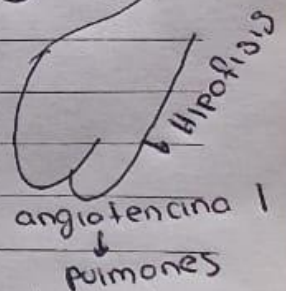 Hipofisis
angiotencina I
↓
pulmones